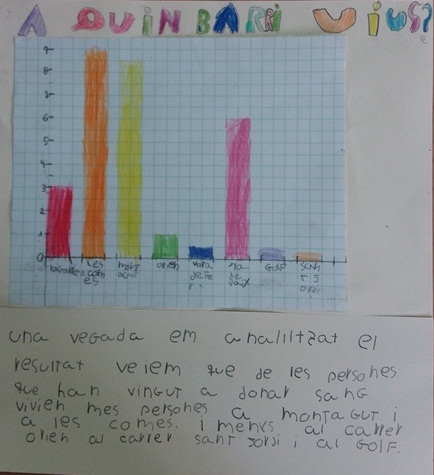 A QUIN BARRI VIUS?
9
8
7
6
5
4
3
2
1
0
LES COM ES
MONT AGU
ORIEN
GOLF
SANT
una vegada em analiltzat el
resultat veiem que de les persones
que han vingut a donar sang
vivien mes persones a montagut i
a les comes. I menys al carrer
orien al carrer sant Jorsi i al GOLF.